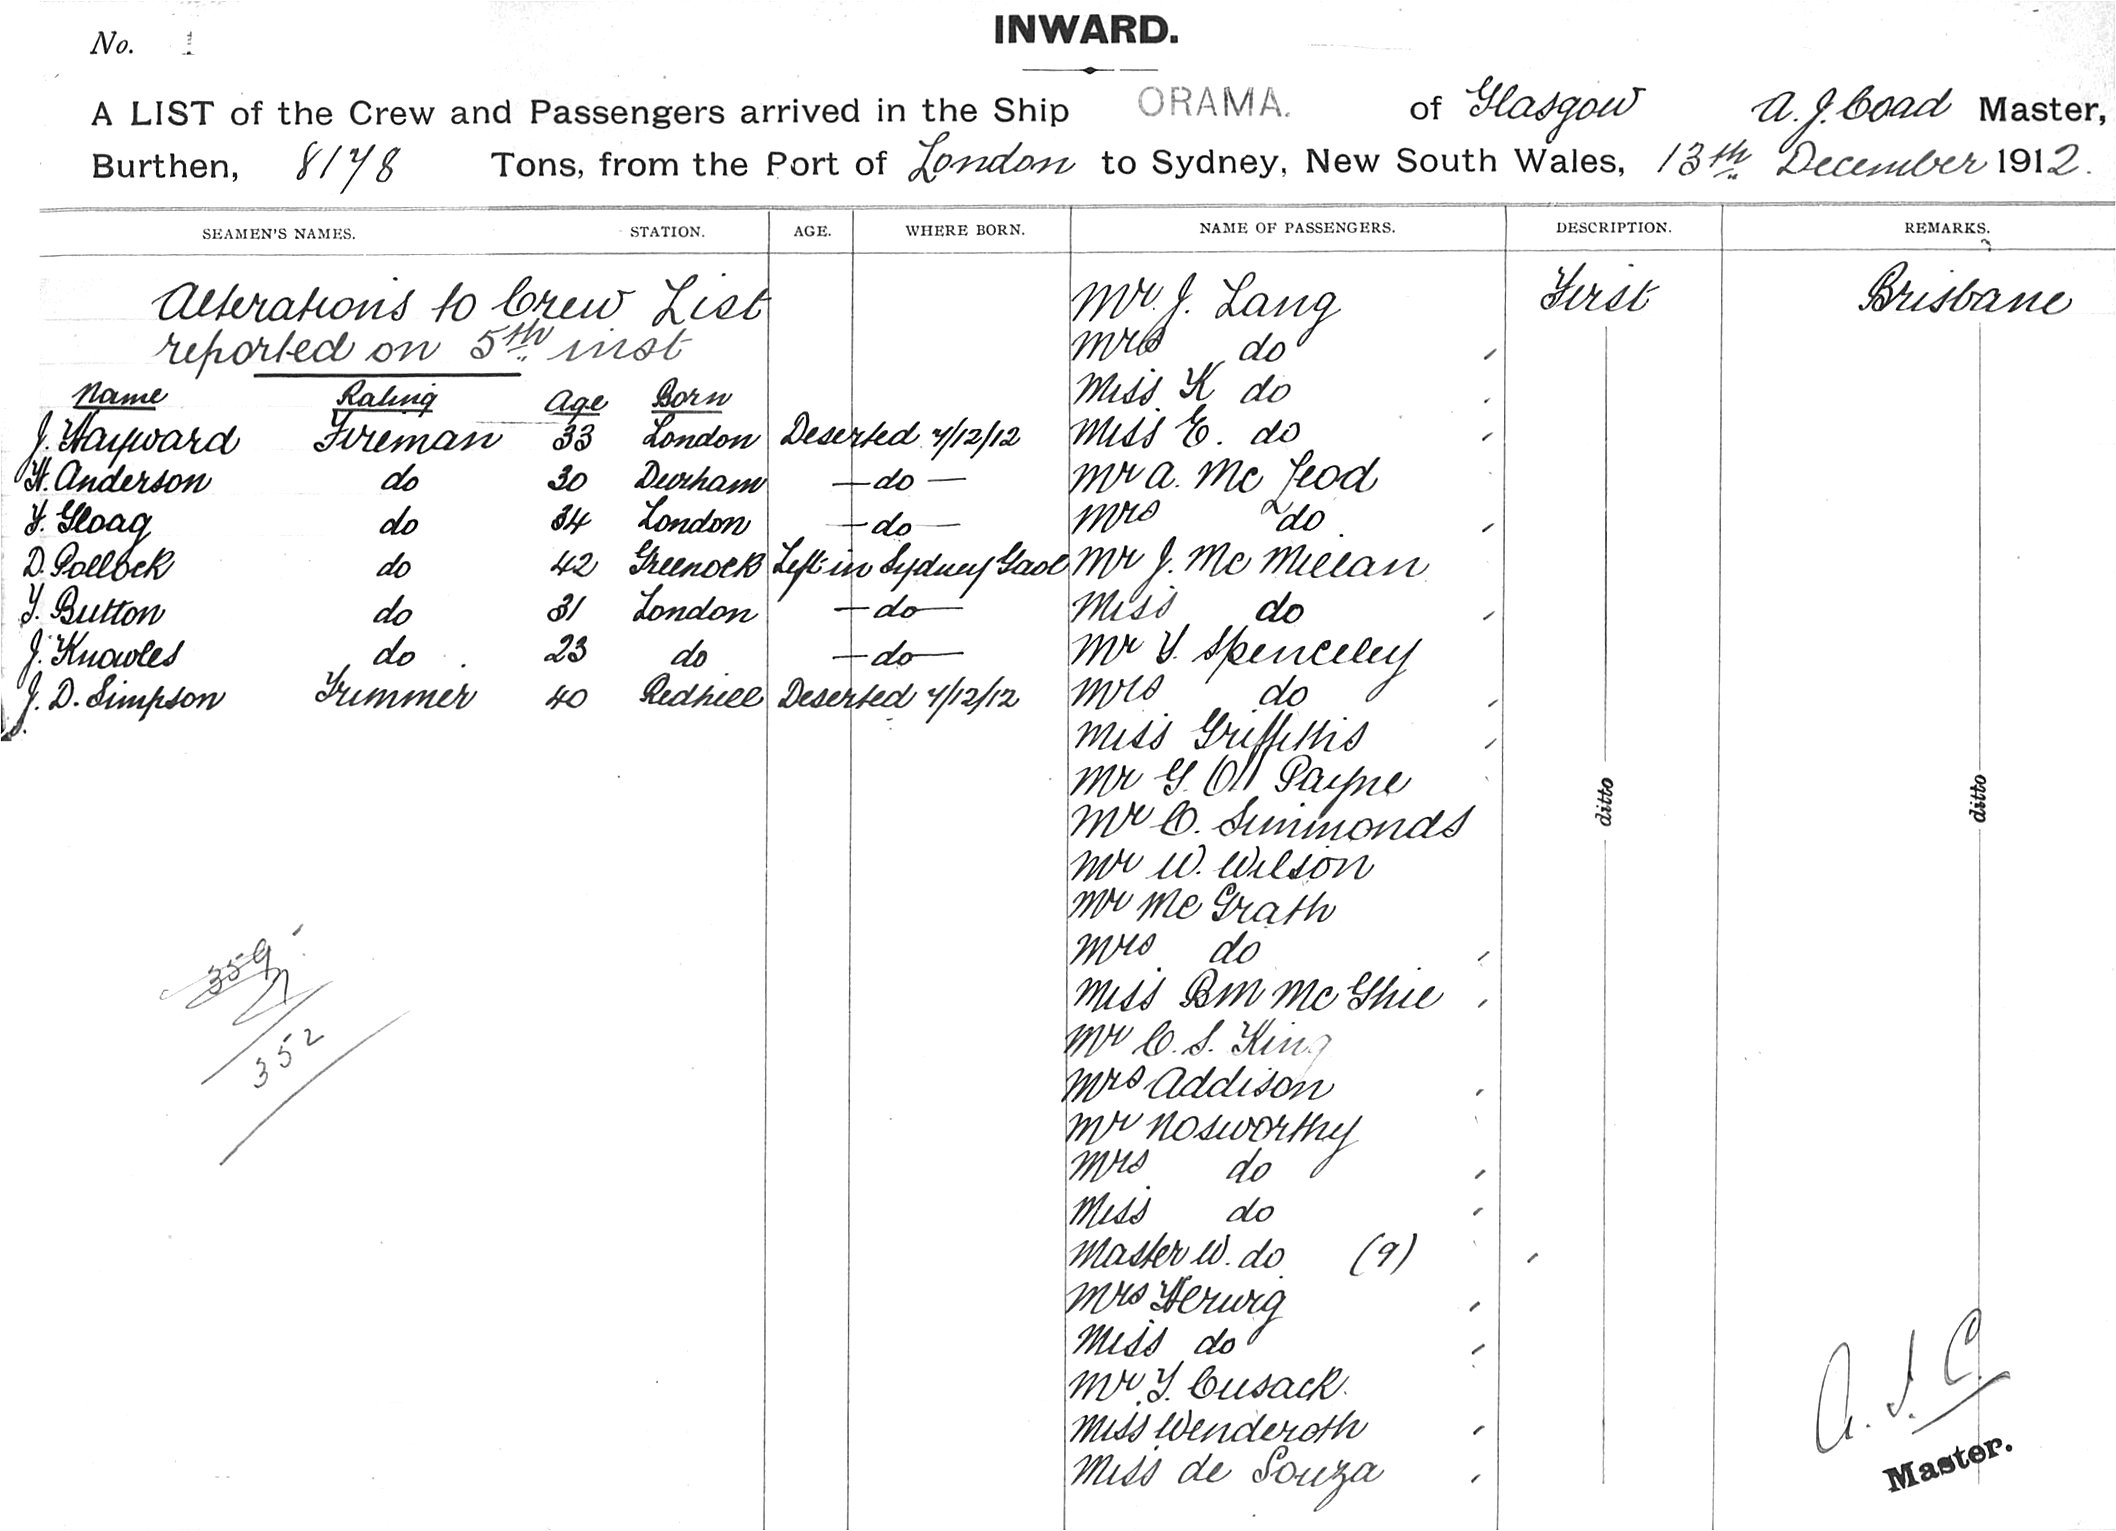 INWARD.
No. 1
A LIST of the Crew and Passengers arrived in the Ship ORAMA. of Glasgow A. J. Coad Master,
Burthen, 8178 Tons, from the Port of London to Sydney, New South Wales, 13th December 1912.
SEAMEN'S NAMES. STATION. AGE. WHERE BORN. NAME OF PASSENGERS. DESCRIPTION. REMARKS.
Alterations to Crew List
reported on 5th inst
Name Rating Age Born
J. Hayward Fireman 33 London Deserted 7/12/12
H. Anderson do 30 Durham —do—
F. Gloag do 34 London —do—
D. Pollock do 42 Greenock Left in Sydney Gaol
T. Button do 31 London —do—
J. Knowles do 23 do —do—
J. D. Simpson Trimmer 40 Redhill Deserted 7/12/12
359
7
352
Mr. J. Lang First Brisbane
Mrs do
Miss K do
Miss E. do
Mr A. McLeod
Mrs do
Mr J. McMillan
Miss do
Mr Y. Spenceley
Mrs do
Miss Griffiths
Mr G. Payne
ditto ditto
Mr C. Simmonds
Mr W. Wilson
Mr McGrath
Mrs do
Miss BM McGhie
Mr C. S. King
Mrs Addison
Mr Nosworthy
Mrs do
Miss do
Master W. do (9)
Mrs Herwig
Miss do
Mr T. Cusack.
Miss Wenderoth
Miss de Souza
A. J. C.
Master.